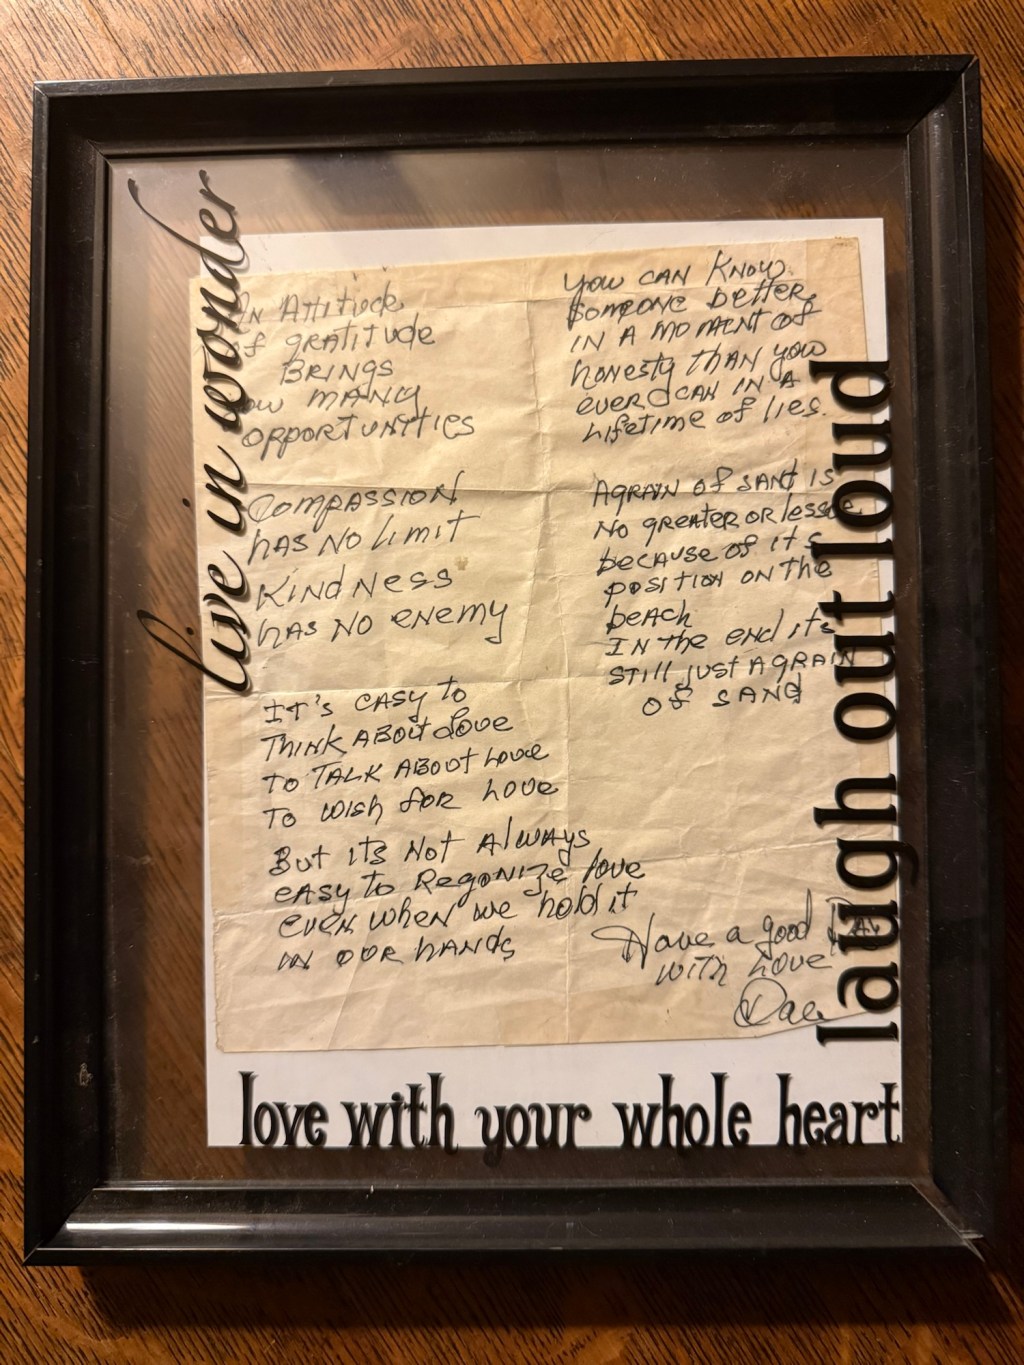 live in wonder
An Attitude
of gratitude
BRINGS
MANY
OPPORTUNITIES
COMPASSION
HAS NO LIMIT
KINDNESS
HAS NO ENEMY
IT'S EASY to
THINK ABOUT Love
TO TALK ABOUT Love
TO WISH FOR Love
But its Not Always
EASY to Regonize love
even when we hold it
IN OUR HANDS
You CAN KNOW
Someone better
IN A MOMENT of
honesty THAN you
ever CAN IN A
Lifetime of lies.
A GRAIN OF SAND IS
NO GREATER OR lesser
because of its
position ON the
beach
IN the end its
STILL just A GRAIN
OF SAND
Have a good Day
with Love
laugh out loud
love with your whole heart